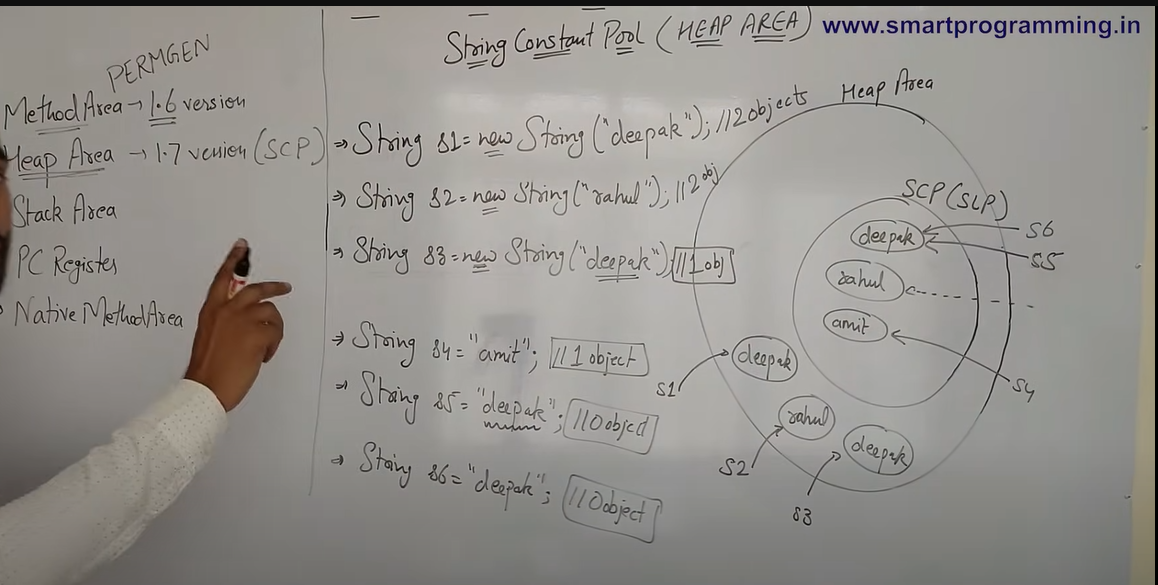 www.smartprogramming.in
String Constant Pool (HEAP AREA)
PERMGEN
Method Area → 1.6 version
Heap Area → 1.7 version (SCP)
Stack Area
PC Register
Native Method Area
⇒ String s1 = new String("deepak"); //2 objects
⇒ String s2 = new String("rahul"); //2 obj
⇒ String s3 = new String("deepak"); //1 obj
⇒ String s4 = "amit"; //1 object
⇒ String s5 = "deepak"; //0 object
⇒ String s6 = "deepak"; //0 object
Heap Area
SCP (SLP)
deepak
s6
s5
rahul
amit
s4
s1
deepak
rahul
s2
deepak
s3